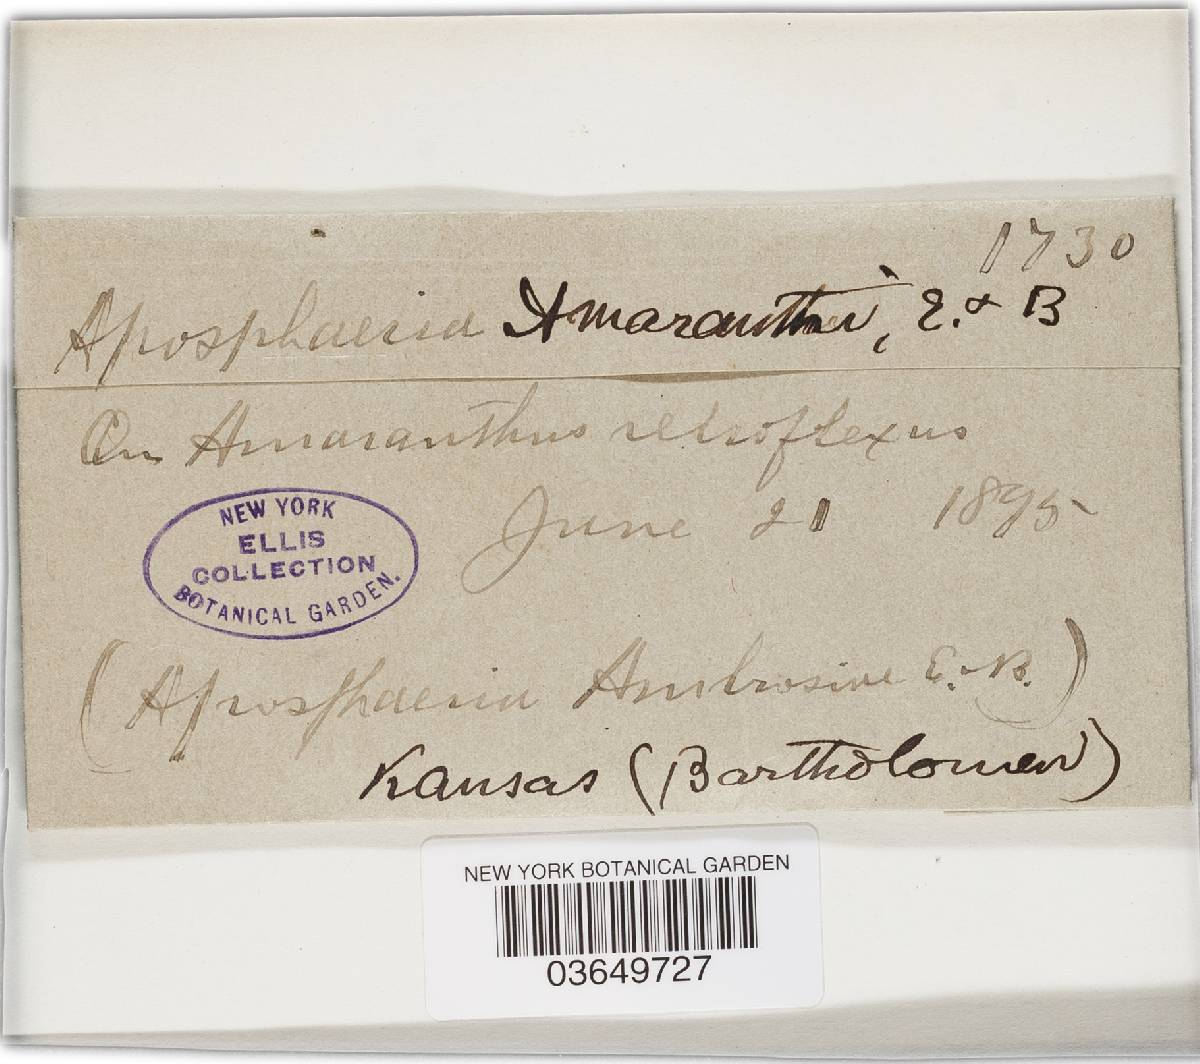 1730
Aposphaeria Amaranthi, E. & B
On Amaranthus retroflexus
June 21 1895
NEW YORK
ELLIS
COLLECTION
BOTANICAL GARDEN.
(Aposphaeria Ambrosiae E. & B.)
Kansas (Bartholomew)
NEW YORK BOTANICAL GARDEN
03649727